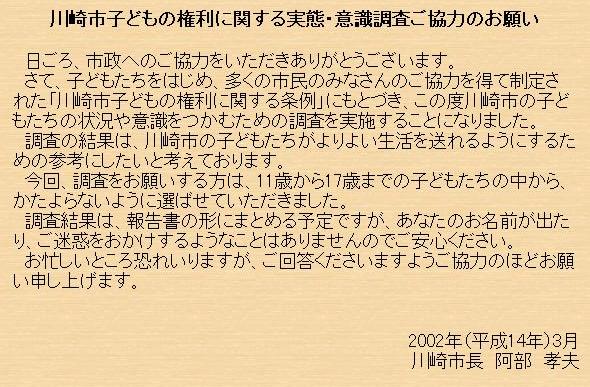 川崎市子どもの権利に関する実態・意識調査ご協力のお願い
日ごろ、市政へのご協力をいただきありがとうございます。
さて、子どもたちをはじめ、多くの市民のみなさんのご協力を得て制定さ
れた「川崎市子どもの権利に関する条例」にもとづき、この度川崎市の子ど
もたちの状況や意識をつかむための調査を実施することになりました。
調査の結果は、川崎市の子どもたちがよりよい生活を送れるようにするた
めの参考にしたいと考えております。
今回、調査をお願いする方は、11歳から17歳までの子どもたちの中から、
かたよらないように選ばせていただきました。
調査結果は、報告書の形にまとめる予定ですが、あなたのお名前が出た
り、ご迷惑をおかけするようなことはありませんのでご安心ください。
お忙しいところ恐れいりますが、ご回答くださいますようご協力のほどお願
い申し上げます。
2002年(平成14年)3月
川崎市長 阿部 孝夫